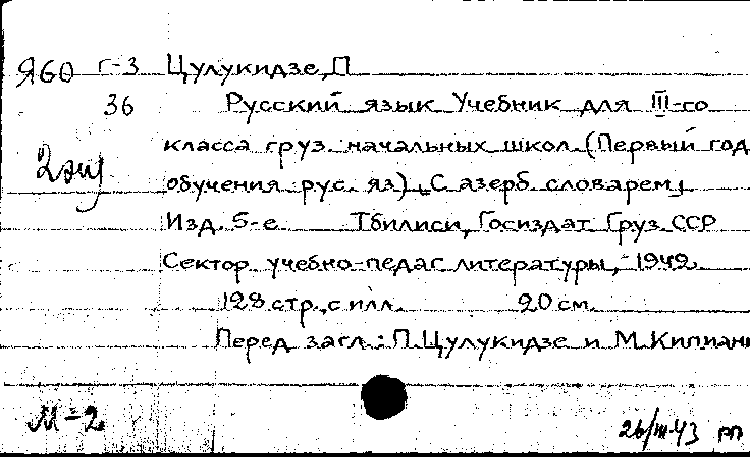 Я60 Г-3 Цулукидзе, П
36 Русский язык Учебник для III-го
класса груз. начальных школ. (Первый год
2 экз
обучения рус. яз.) С азерб. словарем
Изд. 5-е Тбилиси, Госиздат Груз. ССР
Сектор учебно-педаг литературы, 1942.
128 стр., с илл. 20 см.
Перед загл.: П. Цулукидзе и М. Кипиани
М-2
26/III-43